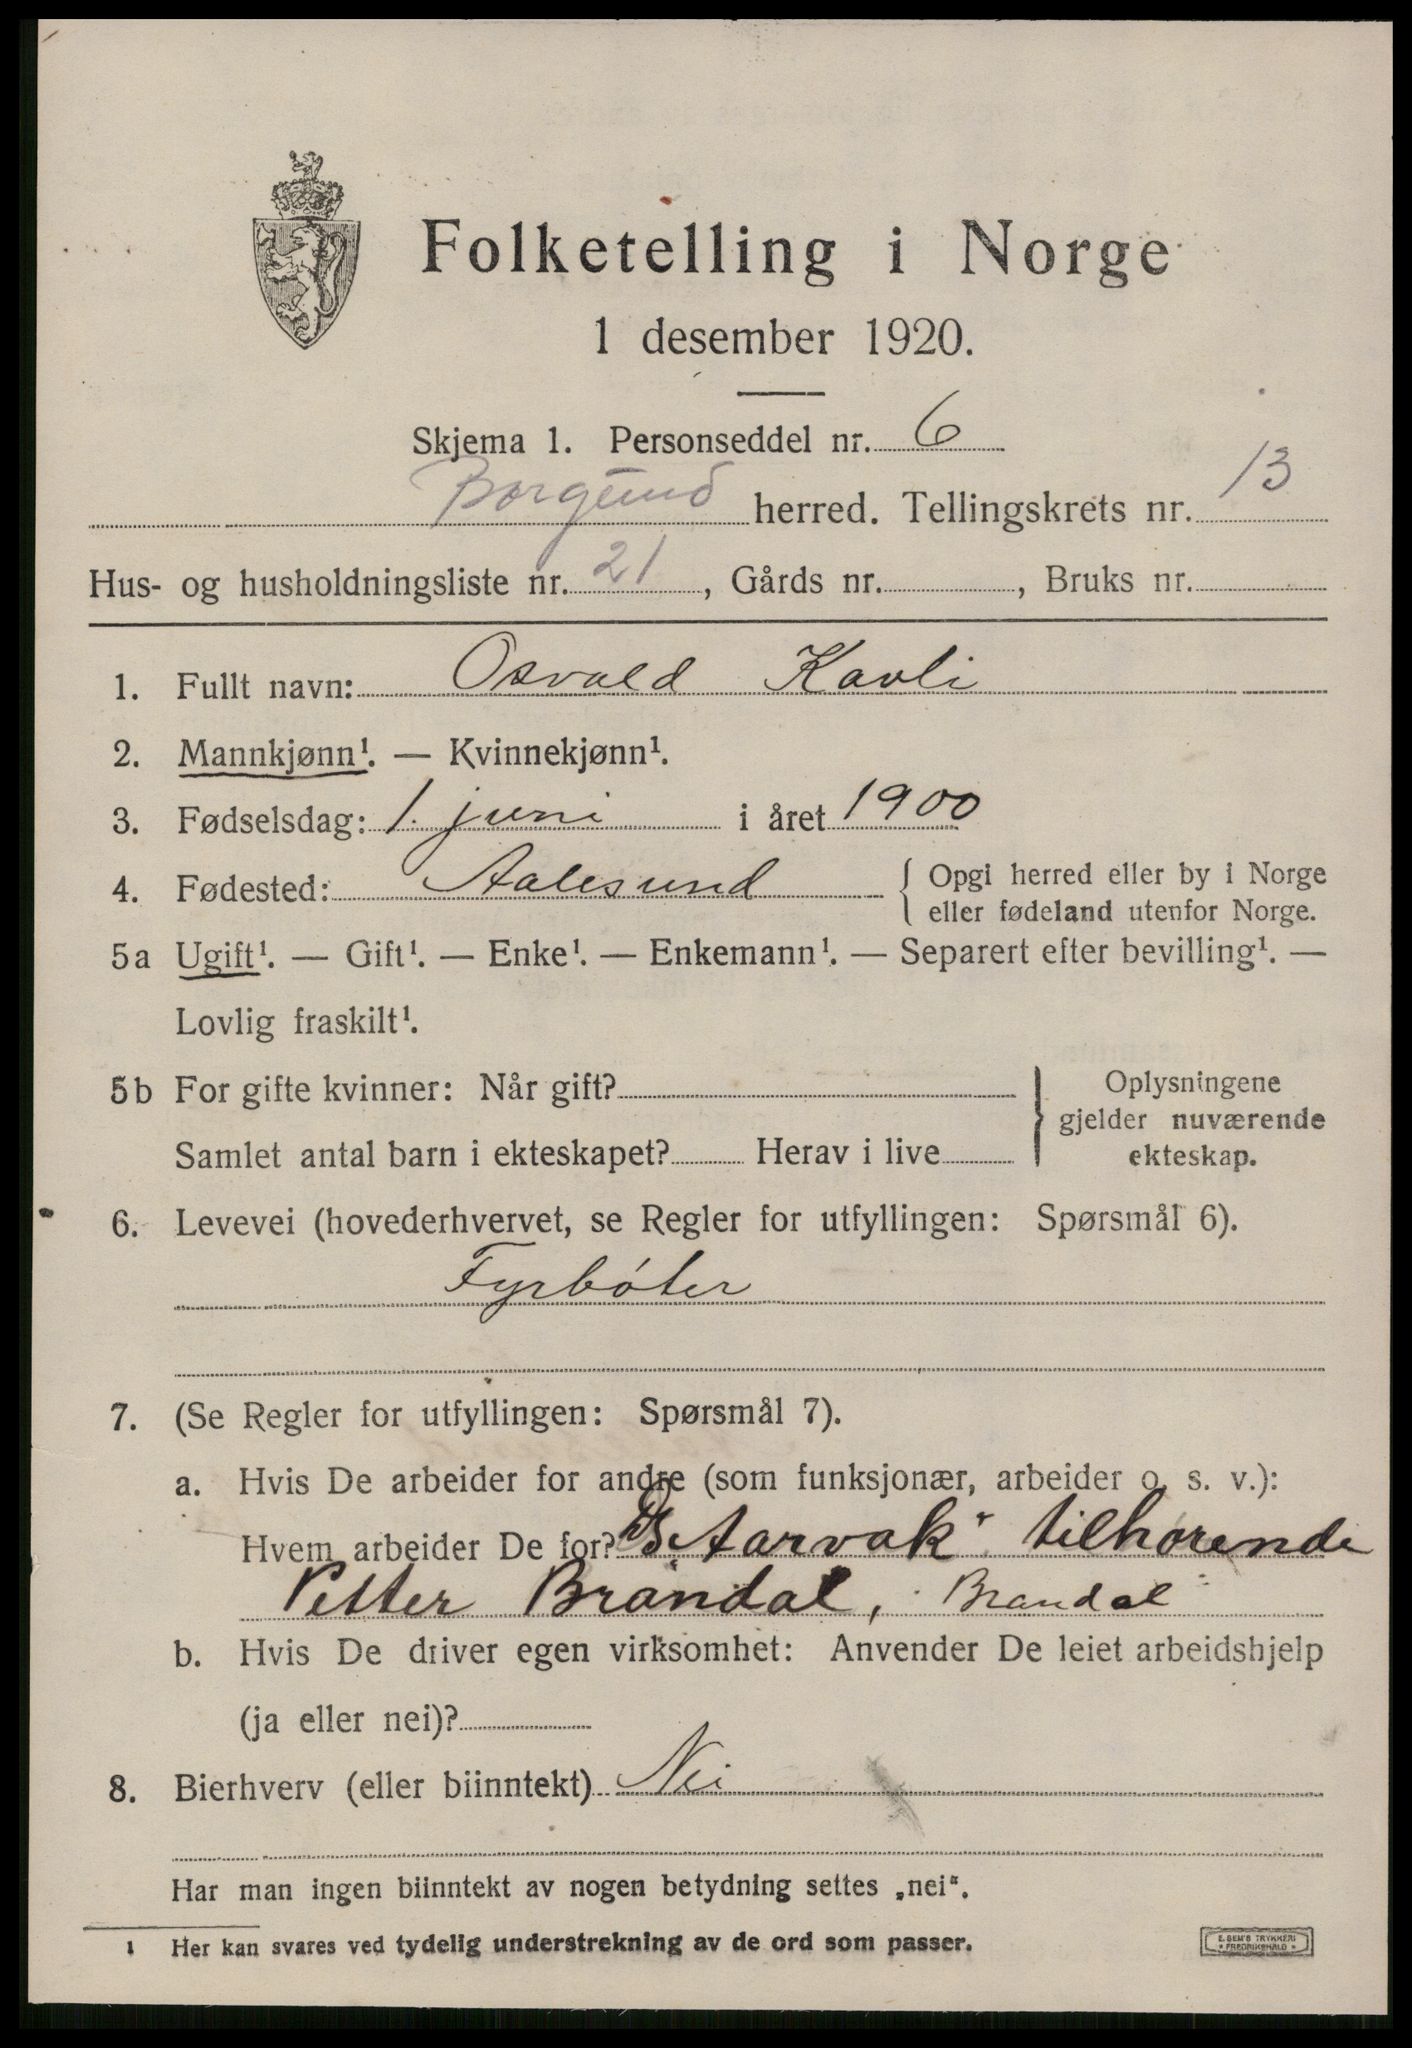 Folketelling i Norge
1 desember 1920.
Skjema 1. Personseddel nr. 6
Borgund herred. Tellingskrets nr. 13
Hus- og husholdningsliste nr. 21, Gårds nr. , Bruks nr.
1. Fullt navn: Osvald Kavli
2. Mannkjønn¹. — Kvinnekjønn¹.
3. Fødselsdag: 1. juni i året 1900
4. Fødested: Aalesund { Opgi herred eller by i Norge
eller fødeland utenfor Norge.
5a Ugift¹. — Gift¹. — Enke¹. — Enkemann¹. — Separert efter bevilling¹. —
Lovlig fraskilt¹.
5b For gifte kvinner: Når gift? } Oplysningene
gjelder nuværende
Samlet antal barn i ekteskapet? Herav i live ekteskap.
6. Levevei (hovederhvervet, se Regler for utfyllingen: Spørsmål 6).
Fyrbóter
7. (Se Regler for utfyllingen: Spørsmål 7).
a. Hvis De arbeider for andre (som funksjonær, arbeider o. s. v.):
Hvem arbeider De for? D/S „Aarvak" tilhørende
Petter Brandal, Brandal
b. Hvis De driver egen virksomhet: Anvender De leiet arbeidshjelp
(ja eller nei)?
8. Bierhverv (eller biinntekt) Nei
Har man ingen biinntekt av nogen betydning settes „nei".
¹ Her kan svares ved tydelig understrekning av de ord som passer.
E. SEM'S TRYKKERI
* FREDRIKSHALD *